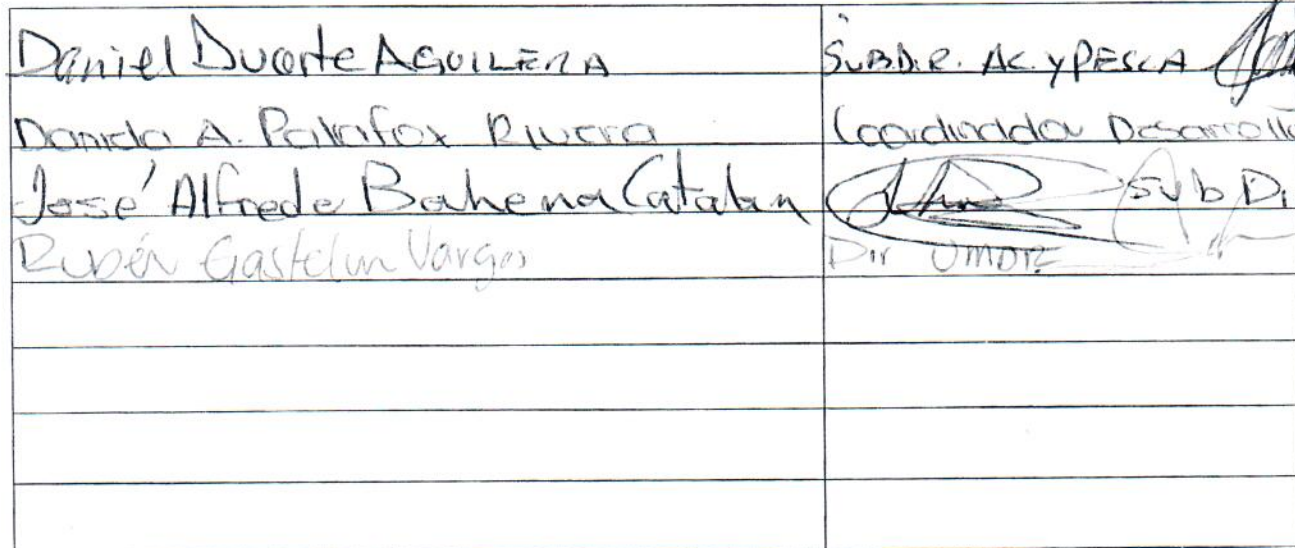 Daniel Duarte AGUILERA SUBDIR. AC. Y PESCA
Danida A. Palafox Rivera Coordinador Desarrollo
José Alfredo Bahena Catalan Sub Di
Rubén Gastelum Vargas Dir UMDR